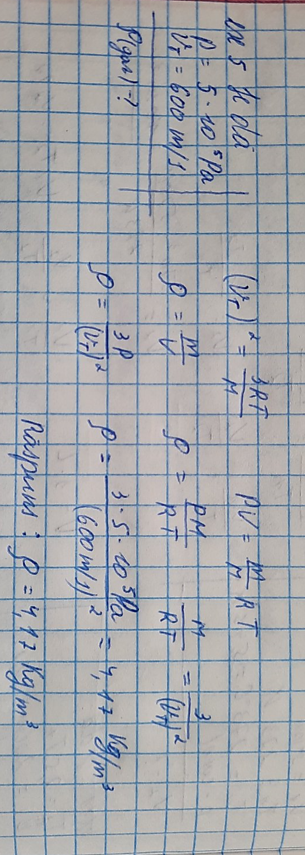 ex 5
Se dă
p = 5 · 10⁵ Pa
v_T = 600 m/s
ρ gaz - ?
(v_T)² = 3RT/M
PV = m/M RT
ρ = m/V
ρ = PM/RT
M/RT = 3/(v_T)²
ρ = 3P/(v_T)²
ρ = 3 · 5 · 10⁵ Pa/(600 m/s)² = 4,17 kg/m³
Răspuns : ρ = 4,17 kg/m³